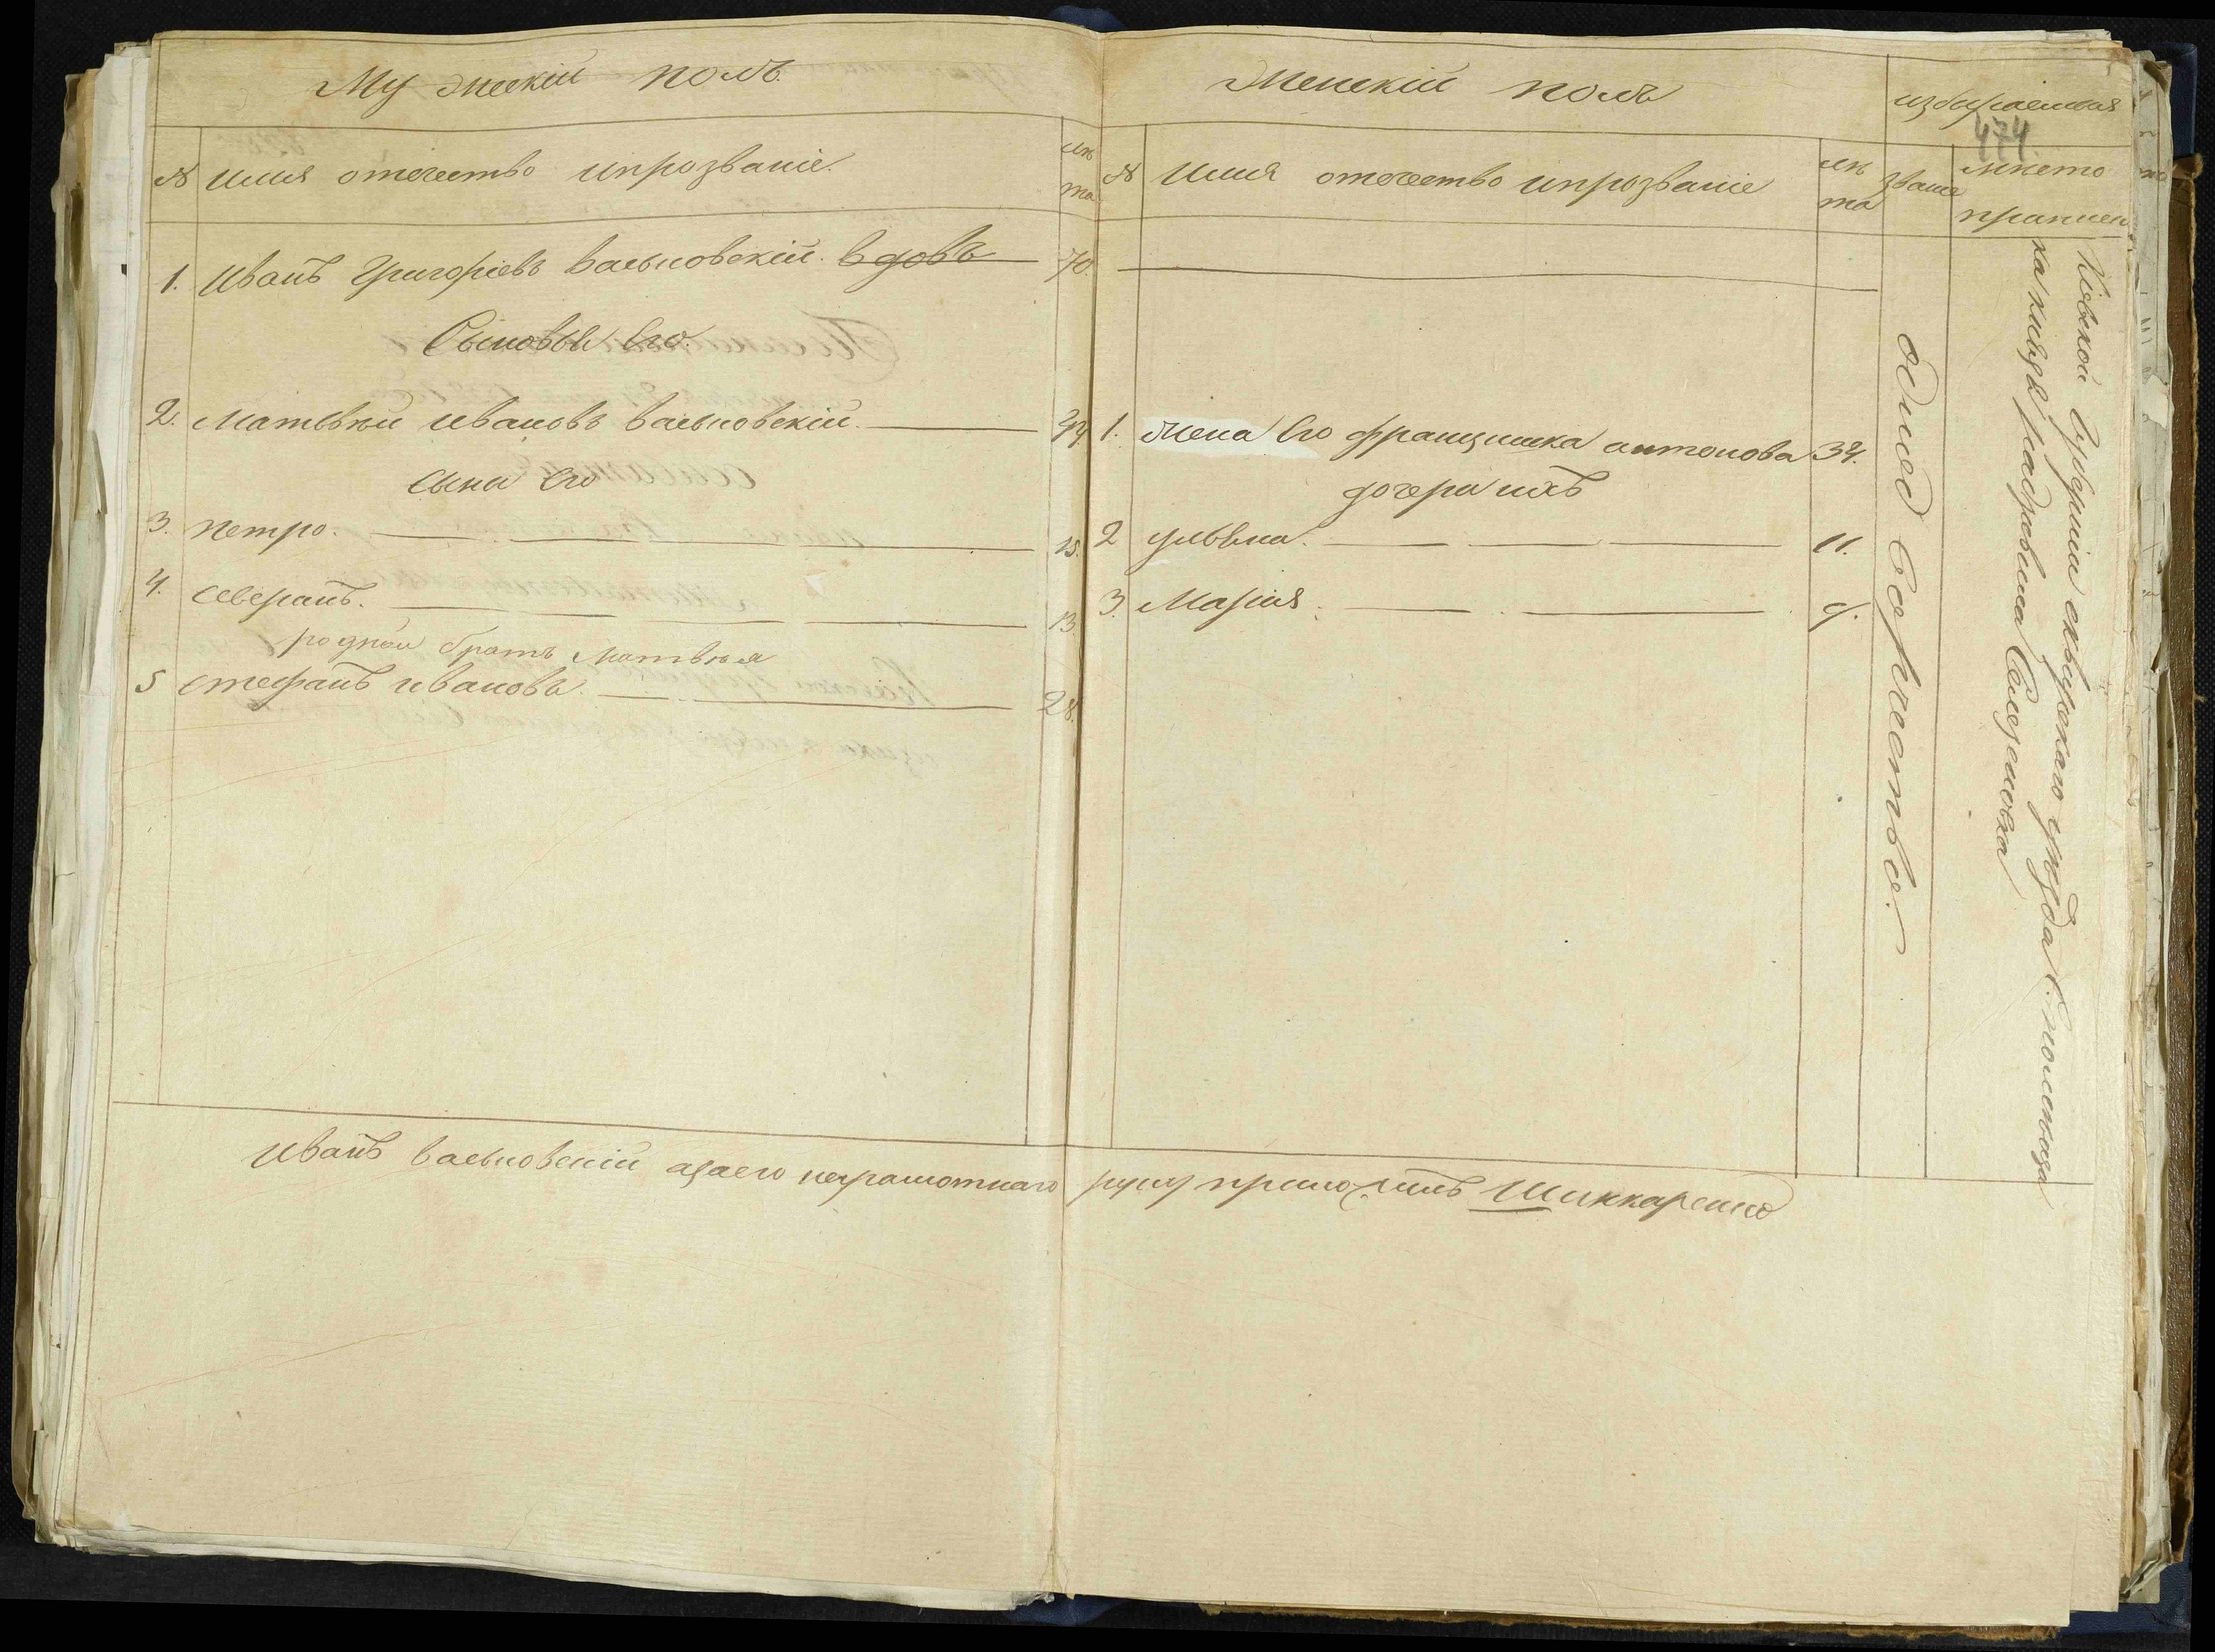 Мужескій полъ.
Женскій полъ
избираемыя
474
№ имя отечество ипрозваніе.
лѣ
та
№ имя отечество ипрозваніе
лѣ
та
званіе
мѣсто
приписки
1. Иванъ Григоріевъ Васьновскій. вдовъ 70.
Сыновья Его.
2. Матьвѣй Ивановъ Васьновскій. 44
1. жена Его францишка антонова 34.
сына Его
дочери ихъ
3. петро. 15.
2 ульяна. 11.
4. северанъ. 13
3. Марія. 9.
родной братъ Матвѣя
5 стефанъ ивановъ. 28.
однодворчество.
Кіевской Губерніи сквирскаго уѣзда С. поменовцы
Иванъ Васьновскій азаего неграмотнаго руку приложилъ Шинкаренко